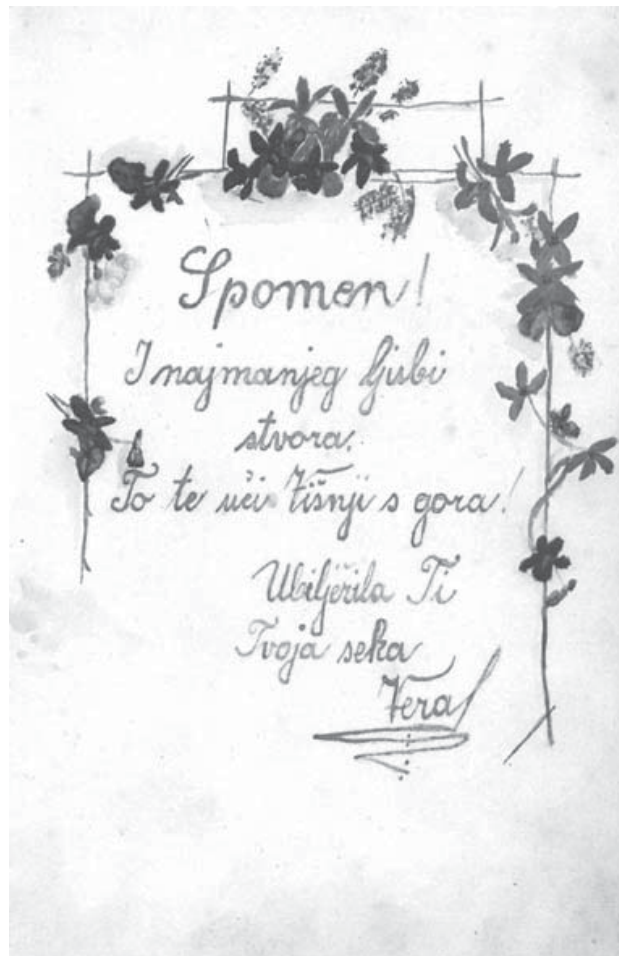 Spomen!
I najmanjeg ljubi
stvora.
To te uči Višnji s gora!
Ubilježila Ti
Tvoja seka
Vera